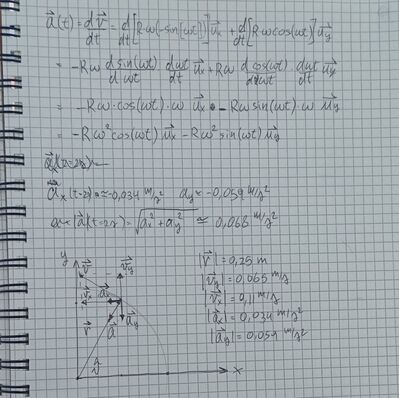 a⃗(t) = dv⃗/dt = d/dt[Rω(-sin(ωt))]u⃗x + d/dt[Rωcos(ωt)]u⃗y
= -Rω d sin(ωt)/d ωt · dωt/dt u⃗x + Rω d cos(ωt)/dωt · dωt/dt u⃗y
= -Rω·cos(ωt)·ω u⃗x - Rω sin(ωt)·ω u⃗y
= -Rω²cos(ωt) u⃗x - Rω² sin(ωt) u⃗y
ax(t=2s) ≈ -0,034 m/s² ay ≈ -0,059 m/s²
|a⃗|(t=2s) = √(ax² + ay²) ≅ 0,068 m/s²
y
v⃗
v⃗y
v⃗x
a⃗x
r⃗
a⃗
a⃗y
x
|r⃗| = 0,25 m
|v⃗y| = 0,065 m/s
|v⃗x| = 0,11 m/s
|a⃗x| = 0,034 m/s²
|a⃗y| = 0,059 m/s²